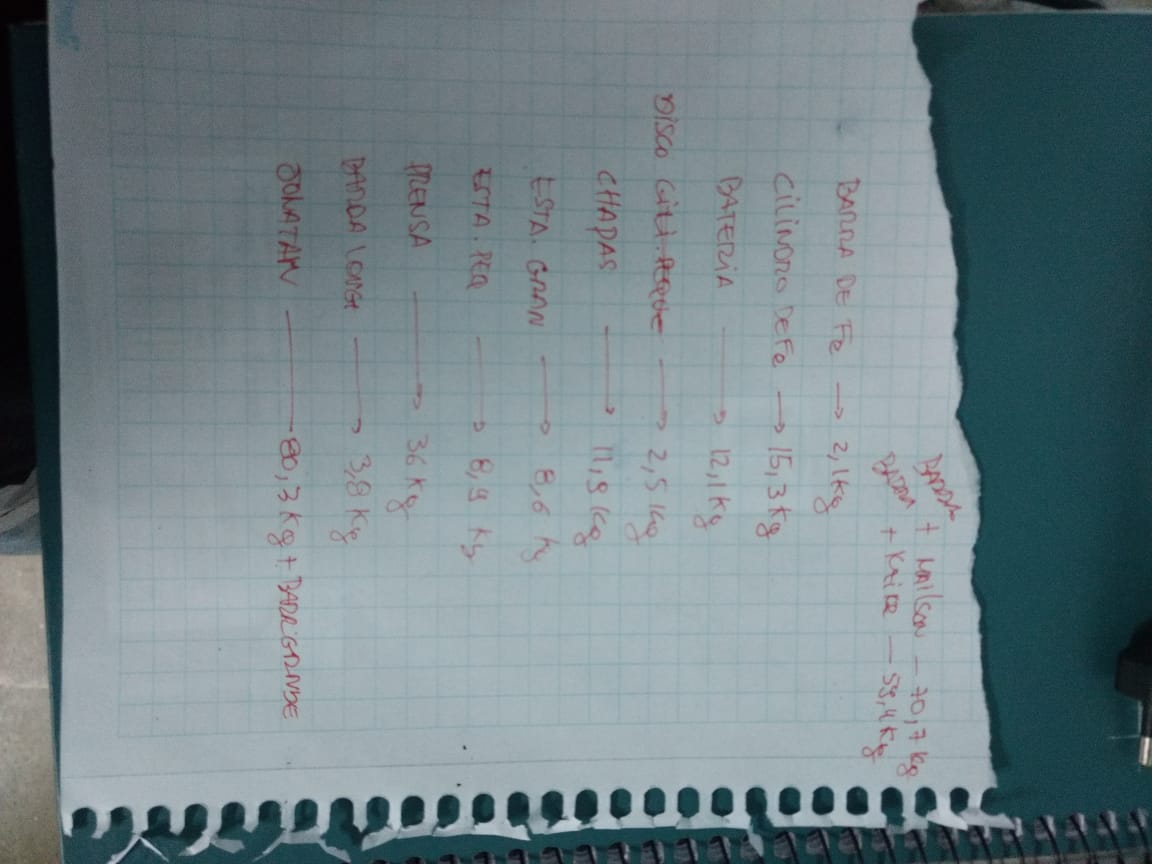 BARRA + MAILSON — 70,7 kg
BARRA + KAIQE — 59,4 kg
BARRA DE Fe → 2,1 kg
CILINDRO DE Fe → 15,3 kg
BATERIA → 12,1 kg
DISCO → 2,5 kg
CHAPAS → 11,9 kg
ESTA. GRAN → 8,6 kg
ESTA. PEQ → 8,9 kg
PRENSA → 36 kg
BARRA LONGA → 3,8 kg
JONATAN → 80,3 kg + BARRIGANDE